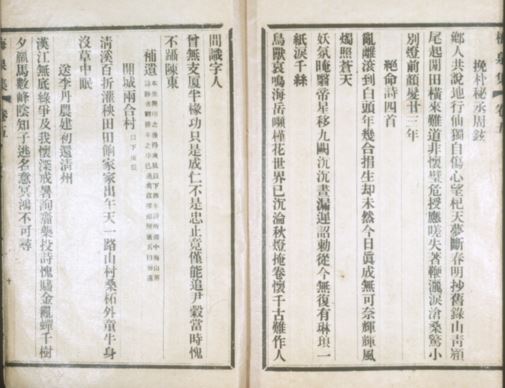 梅泉集 卷五
挽朴秘丞周鉉
鄉人共說地行仙獨自傷心望杞天夢斷春明抄舊錄山靑潁
尾起閒田橫來難道非懷璧危授應嗟失著鞭瀧淚滄桑驚小
別燈前顏髮廿三年
絕命詩四首
亂離滾到白頭年幾合捐生却未然今日眞成無可奈輝輝風
燭照蒼天
妖氛晻翳帝星移九闕沉沉晝漏遲詔勅從今無復有琳琅一
紙淚千絲
鳥獸哀鳴海岳嚬槿花世界已沉淪秋燈掩卷懷千古難作人
間識字人
曾無支厦半椽功只是成仁不是忠止竟僅能追尹穀當時愧
不躡陳東
補遺
開城兩合村
淸溪百折灌秧田田餉家家出午天一路山村桑柘外童牛身
沒草中眠
送李月農建初還淸州
漢江無底綠爭及我懷深暑洵嘉藥投詩愧贐金亂蟬千樹
夕羸馬數峰陰知子逃名意冥鴻不可尋
梅泉集 卷五